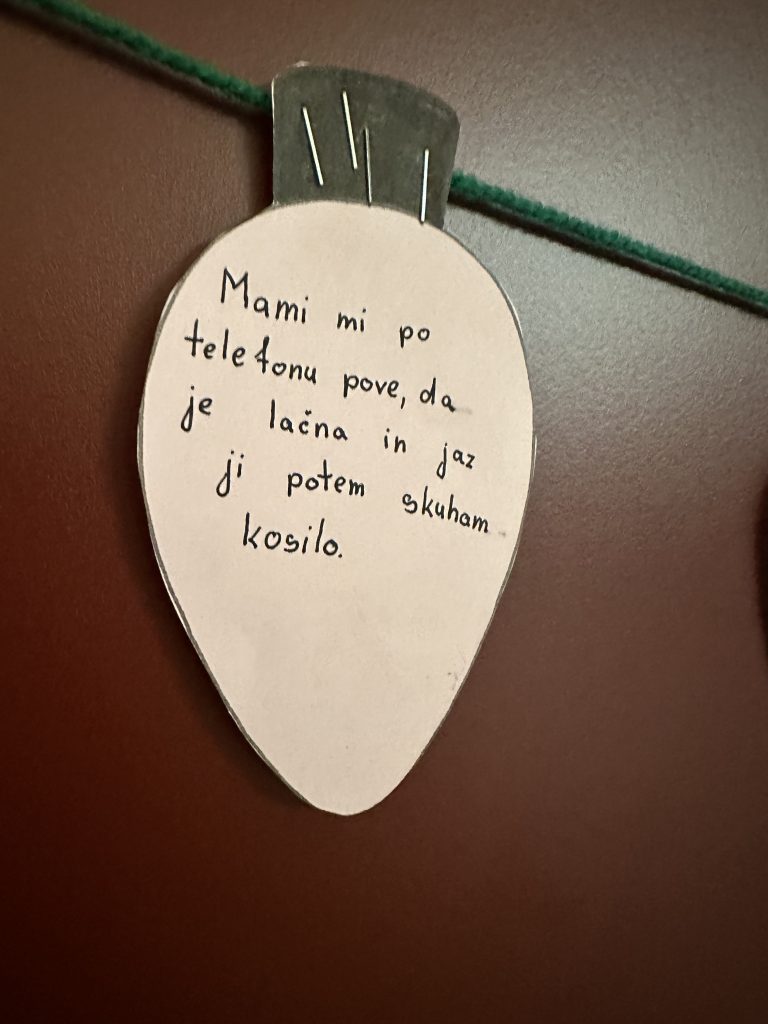 Mami mi po
telefonu pove, da
je lačna in jaz
ji potem skuham
kosilo.